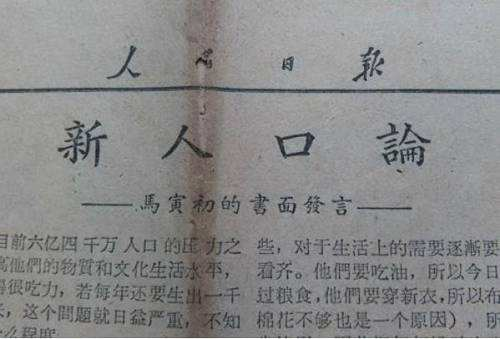 人民日報
新人口論
——馬寅初的書面發言——
目前六亿四千万人口的压力之
高他們的物質和文化生活水平，
得很吃力，若每年还要生出一千
来，这个問題就日益严重，不知
些，对于生活上的需要逐漸要
看齐。他們要吃油，所以今日
过粮食，他們要穿新衣，所以布
棉花不够也是一个原因），所